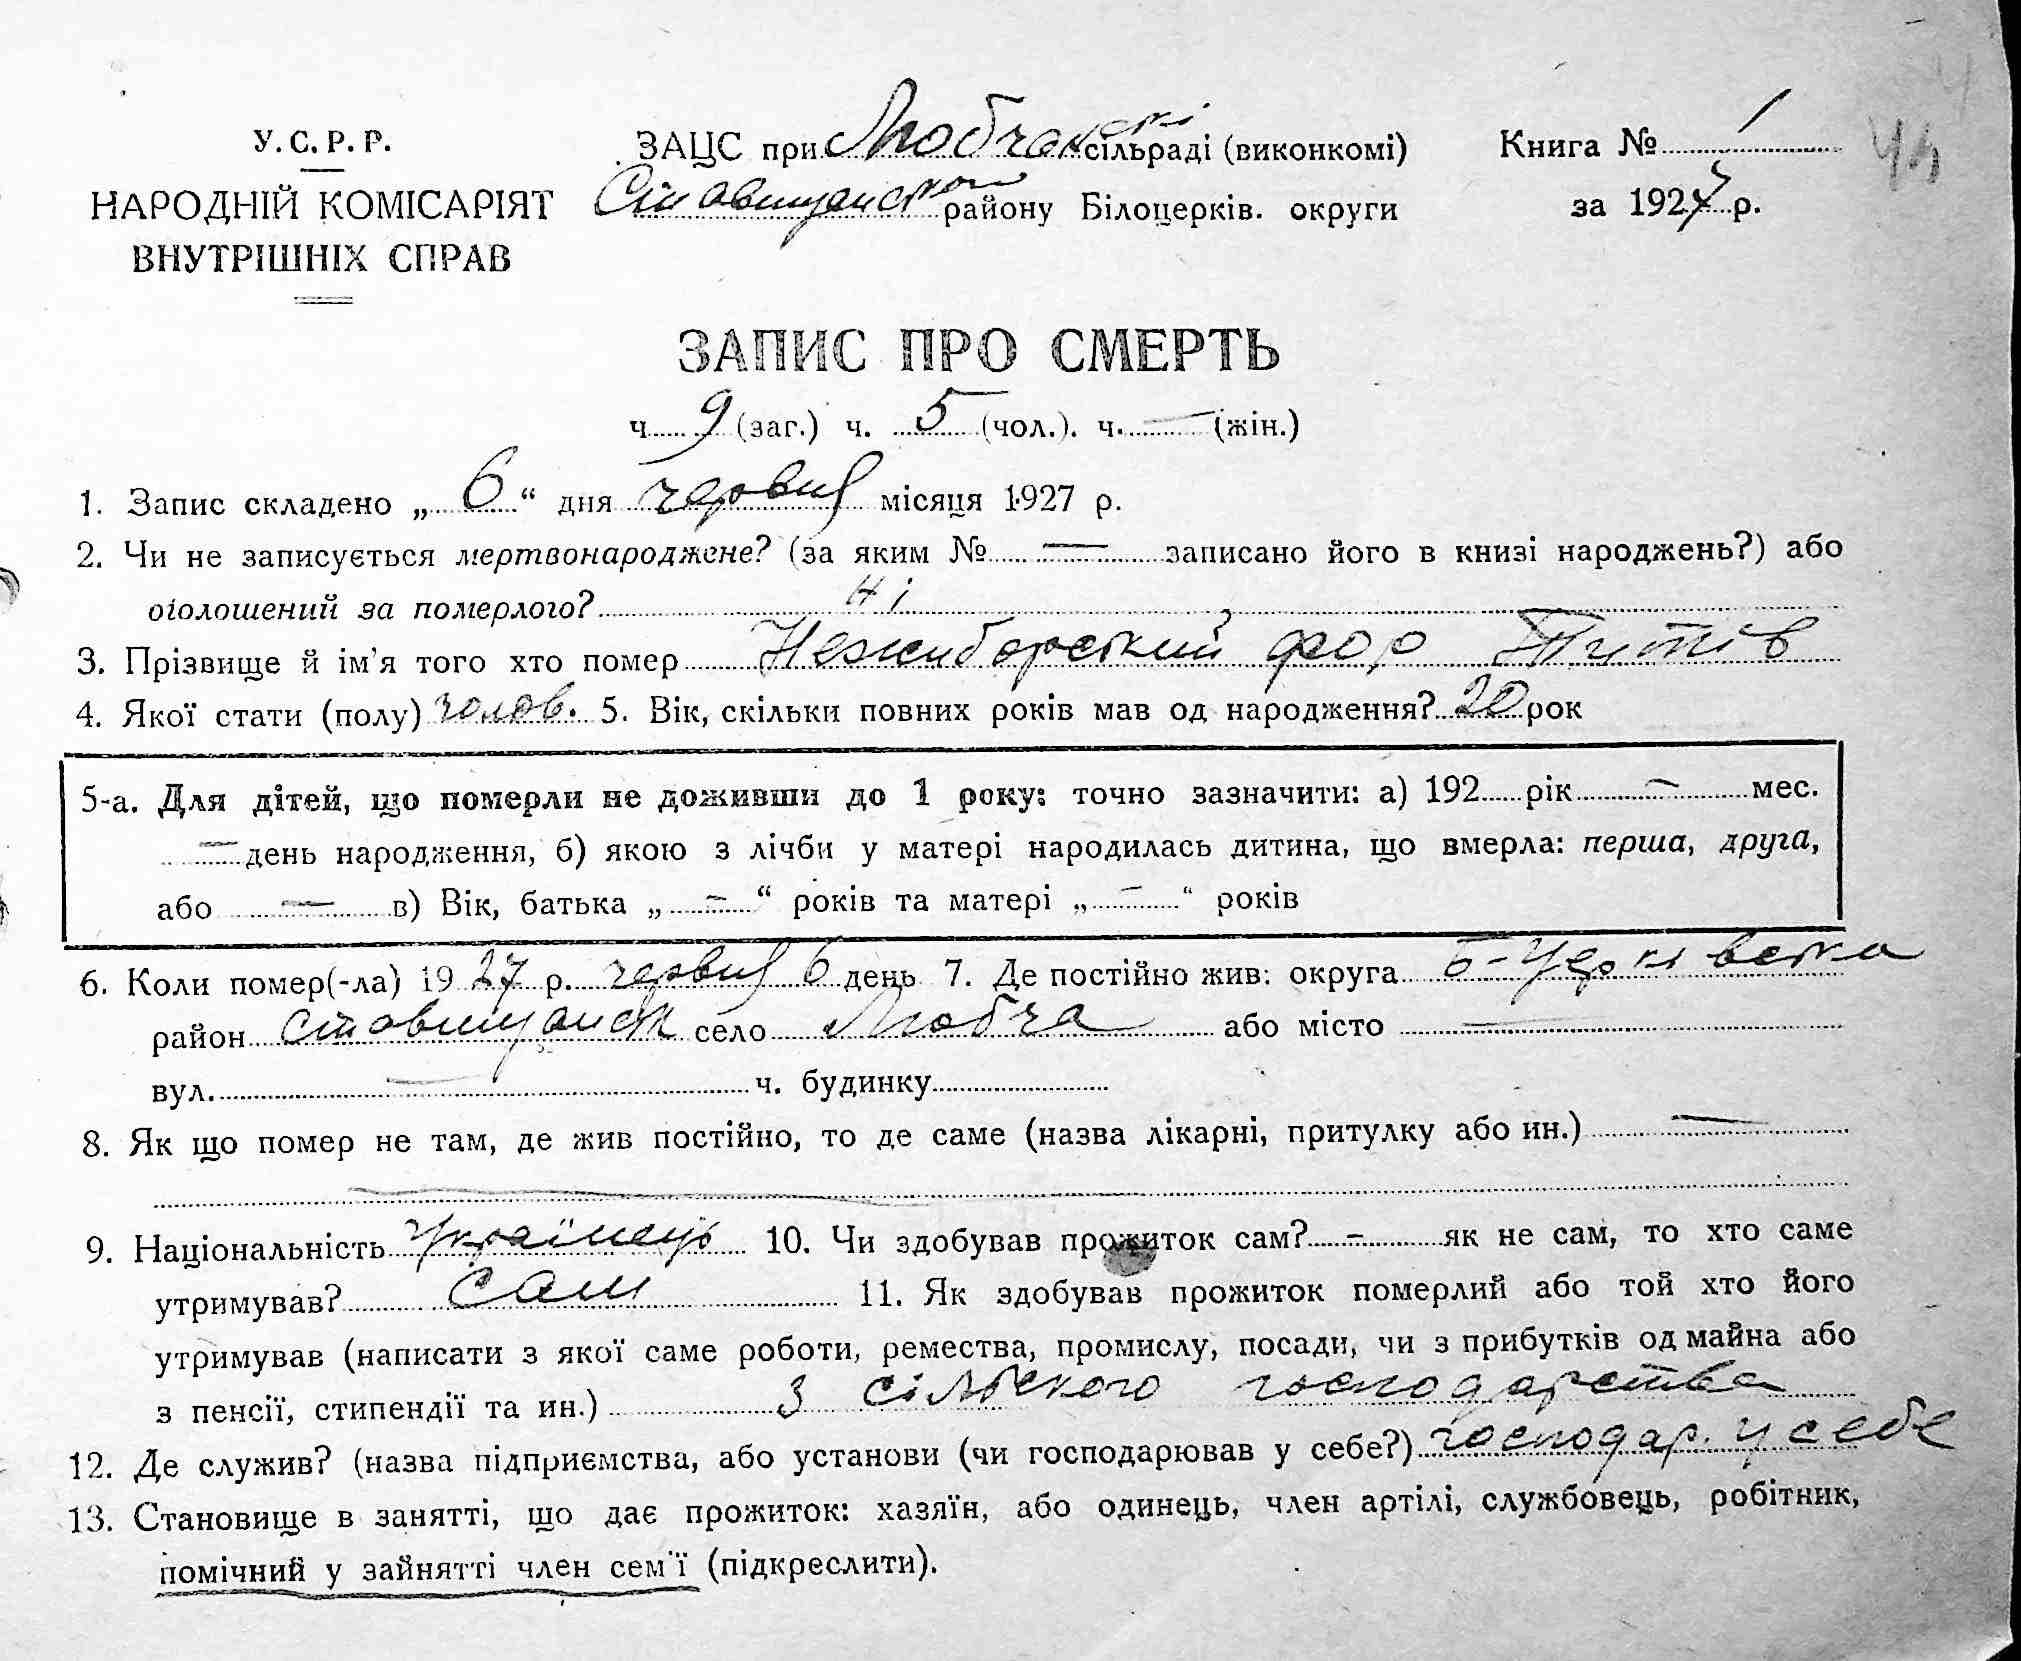 У.С.Р.Р.
НАРОДНІЙ КОМІСАРІЯТ
ВНУТРІШНІХ СПРАВ
ЗАЦС при Любчанскі сільраді (виконкомі)
Ставищанськ району Білоцерків. округи
Книга № 1
за 1927 р.
44
ЗАПИС ПРО СМЕРТЬ
ч 9 (заг.) ч. 5 (чол.). ч. — (жін.)
1. Запис складено „ 6 “ дня червня місяця 1927 р.
2. Чи не записується мертвонароджене? (за яким № — записано його в книзі народжень?) або
оголошений за померлого? Ні
3. Прізвище й ім’я того хто помер Нежиборський Титів
4. Якої стати (полу) чолов. 5. Вік, скільки повних років мав од народження? 20 рок
5-а. Для дітей, що померли не доживши до 1 року: точно зазначити: а) 192 рік — мес.
— день народження, б) якою з лічби у матері народилась дитина, що вмерла: перша, друга,
або — в) Вік, батька „ — “ років та матері „ — “ років
6. Коли помер(-ла) 1927 р. червня 6 день 7. Де постійно жив: округа Б-Церківська
район Ставищанськ село Любча або місто —
вул. — ч. будинку
8. Як що помер не там, де жив постійно, то де саме (назва лікарні, притулку або ин.) —
9. Національність Українець 10. Чи здобував прожиток сам? — як не сам, то хто саме
утримував? сам 11. Як здобував прожиток померлий або той хто його
утримував (написати з якої саме роботи, ремества, промислу, посади, чи з прибутків од майна або
з пенсії, стипендії та ин.) З сільского господарства
12. Де служив? (назва підприємства, або установи (чи господарював у себе?) господар. у себе
13. Становище в занятті, що дає прожиток: хазяїн, або одинець, член артілі, службовець, робітник,
помічний у зайнятті член сем’ї (підкреслити).